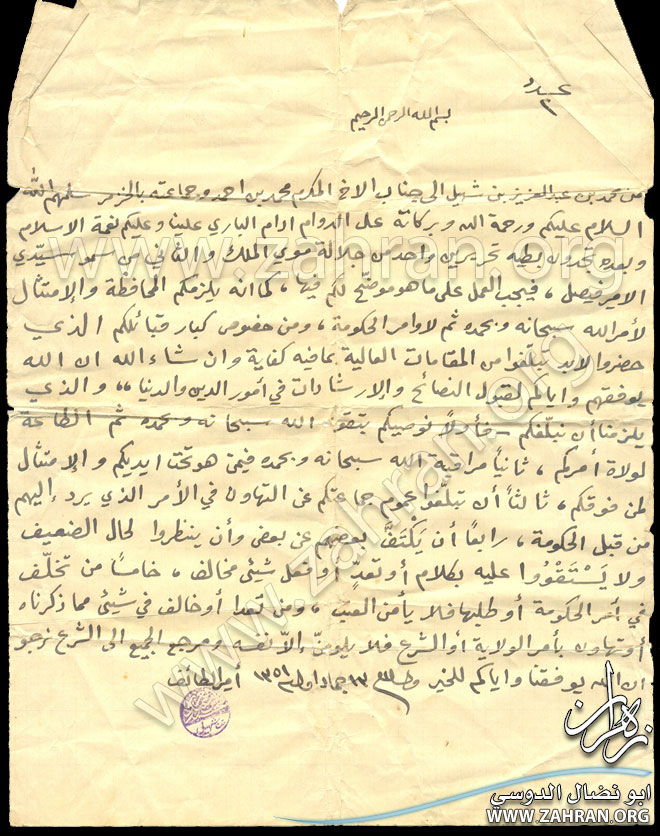 عدد
٢
بسم الله الرحمن الرحيم
من محمد بن عبد العزيز بن شهيل الى جناب الاخ المكرم محمد بن احمد وجماعته بالخزمر سلمهم الله
السلام عليكم ورحمة الله وبركاته على الدوام ادام الباري علينا وعليكم نعمة الاسلام
وبعده تجدون بطيه تحريرين واحد من جلالة مولاي الملك والثاني من سمو سيدي
الامير فيصل ، فيجب العمل على ما هو موضح لكم فيها ، كما انه يلزمكم المحافظة والإمتثال
لأمر الله سبحانه وبحمده ثم لاوامر الحكومة ، ومن خصوص كبار قبائلكم الذي
حضروا لابد تبلغوا من المقامات العالية بما فيه كفاية وان شاء الله ان الله
يوفقهم واياكم لقبول النصائح والإرشادات في أمور الدين والدنيا ،، والذي
يلزمنا أن نبلغكم فأولاً نوصيكم بتقوا الله سبحانه وبحمده ثم الطاعة
لولاة أمركم ، ثانياً مراقبة الله سبحانه وبحمده فيمن هو تحت ايديكم والإمتثال
لمن فوقكم ، ثالثاً أن تبلغوا عموم جماعتكم عن التهاون في الأمر الذي يرد إليهم
من قبل الحكومة ، رابعاً أن يكتفّ بعضهم عن بعض وأن ينظروا لحال الضعيف
ولا يستقووا عليه بكلام أو تعدّ أو فعل شيئ مخالف ، خامساً من تخلّف
في أمر الحكومة أو طلبها فلا يأمن العتب ، ومن تعدا أو خالف في شيئ مما ذكرناه
أو تهاون بأمر الولاية أو الشرع فلا يلومنّ إلاّ نفسه ومرجع الجميع الى الشرع نرجو
ان الله يوفقنا واياكم للخير ١٣ جماد اول ١٣٥١ أمير الطائف
زهران
ابو نضال الدوسي
WWW.ZAHRAN.ORG
www.zahran.org
www.zahran.org
www.zahran.org